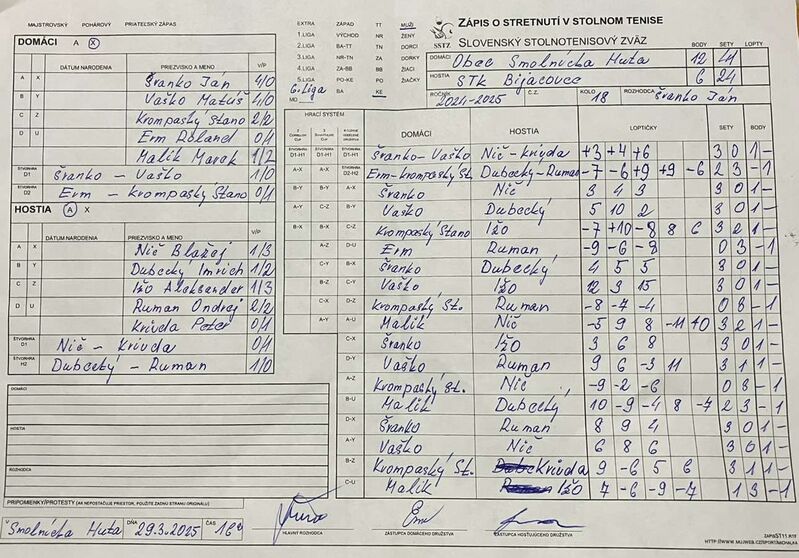 MAJSTROVSKÝ POHÁROVÝ PRIATEĽSKÝ ZÁPAS
DOMÁCI A X
DÁTUM NARODENIA PRIEZVISKO A MENO V/P
A X Švanko Ján 4/0
B Y Vaško Matúš 4/0
C Z Krompaský Stano 2/2
D U Erm Roland 0/1
Malik Marek 1/2
ŠTVORHRA D1 Švanko - Vaško 1/0
ŠTVORHRA D2 Erm - Krompaský Stano 0/1
HOSTIA A X
DÁTUM NARODENIA PRIEZVISKO A MENO V/P
A X Nič Blažej 1/3
B Y Dubecký Imrich 1/2
C Z Ižo Aleksander 1/3
D U Ruman Ondrej 2/2
Krivda Peter 0/1
ŠTVORHRA D1 Nič - Krivda 0/1
ŠTVORHRA H2 Dubecký - Ruman 1/0
DOMÁCI
HOSTIA
ROZHODCA
PRIPOMIENKY/PROTESTY (AK NEPOSTAČUJE PRIESTOR, POUŽITE ZADNÚ STRANU ORIGINÁLU)
V Smolnícka Huta DŇA 29.3.2025 ČAS
HLAVNÝ ROZHODCA
ZÁSTUPCA DOMÁCEHO DRUŽSTVA
ZÁSTUPCA HOSŤUJÚCEHO DRUŽSTVA
EXTRA ZÁPAD TT MUŽI
1.LIGA VÝCHOD NR ŽENY
2.LIGA BA-TT TN DORCI
3.LIGA NR-TN ZA DORKY
4.LIGA ZA-BB BB ŽIACI
5.LIGA PO-KE PO ŽIAČKY
6.liga BA KE
MO
SSTZ
ZÁPIS O STRETNUTÍ V STOLNOM TENISE
SLOVENSKÝ STOLNOTENISOVÝ ZVÄZ
BODY SETY LOPTY
DOMÁCI Obec Smolnícka Huta 12 41
HOSTIA STK Bijacovce 6 24
ROČNÍK 2024-2025 Č.Z. KOLO 18 ROZHODCA Švanko Ján
HRACÍ SYSTÉM
DOMÁCI HOSTIA LOPTIČKY SETY BODY
D1-H1 D1-H1 Švanko-Vaško Nič-Krivda +3 +4 +6 3 0 1 -
A-X D2-H2 Erm-Krompaský St. Dubecký-Ruman -7 -6 +9 +9 -6 2 3 - 1
B-Y B-Y A-X Švanko Nič 3 4 3 3 0 1 -
A-Y C-Z B-Y Vaško Dubecký 5 10 2 3 0 1 -
B-X B-X C-Z Krompaský Stano Ižo -7 +10 -8 8 6 3 2 1 -
A-Z D-U Erm Ruman -9 -6 -8 0 3 - 1
C-Y B-X Švanko Dubecký 4 5 5 3 0 1 -
B-Z C-Y Vaško Ižo 12 3 15 3 0 1 -
C-X D-Z Krompaský St. Ruman -8 -7 -4 0 3 - 1
A-Y A-U Malik Nič -5 9 8 -11 +0 3 2 1 -
C-X Švanko Ižo 3 6 8 3 0 1 -
D-Y Vaško Ruman 9 6 -3 11 3 1 1 -
A-Z Krompaský St. Nič -9 -2 -6 0 3 - 1
B-U Malik Dubecký 10 -9 -4 8 -7 2 3 - 1
D-X Švanko Ruman 8 9 4 3 0 1 -
A-Y Vaško Nič 6 8 6 3 0 1 -
B-Z Krompaský St. Krivda 9 -6 5 6 3 1 1 -
C-U Malik Ižo 9 -6 -9 -7 1 3 - 1